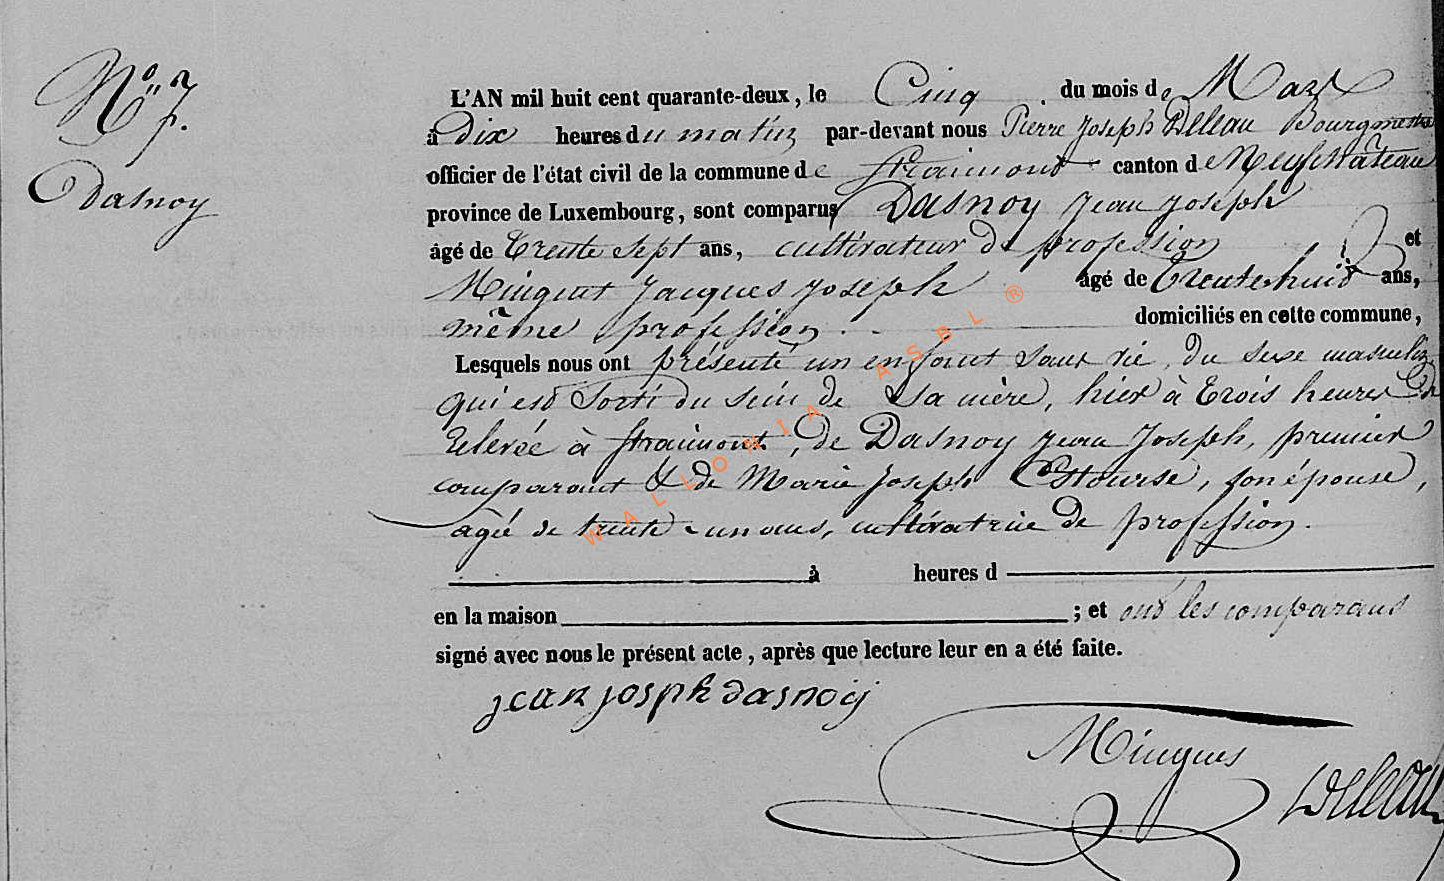 N° 7.
Dasnoy
L'AN mil huit cent quarante-deux, le Cinq du mois de Mars
à Dix heures du matin par-devant nous Pierre Joseph Delleau Bourgmestre
officier de l'état civil de la commune de Straimont canton de Neufchâteau
province de Luxembourg, sont comparus Dasnoy Jean Joseph
âgé de trente sept ans, cultivateur de profession et
Minguet Jacques Joseph âgé de trente huit ans,
même profession. domiciliés en cette commune,
Lesquels nous ont présenté un enfant sans vie, du sexe masculin
qui est sorti du sein de sa mère, hier à trois heures de
relevée à Straimont, de Dasnoy Jean Joseph, premier
comparant & de Marie Joseph son épouse,
agée de trente-un ans, cultivatrice de profession.
à heures d
en la maison ; et ont les comparans
signé avec nous le présent acte, après que lecture leur en a été faite.
jean josph dasnoij
Delleau
WALLONIA ASBL ®